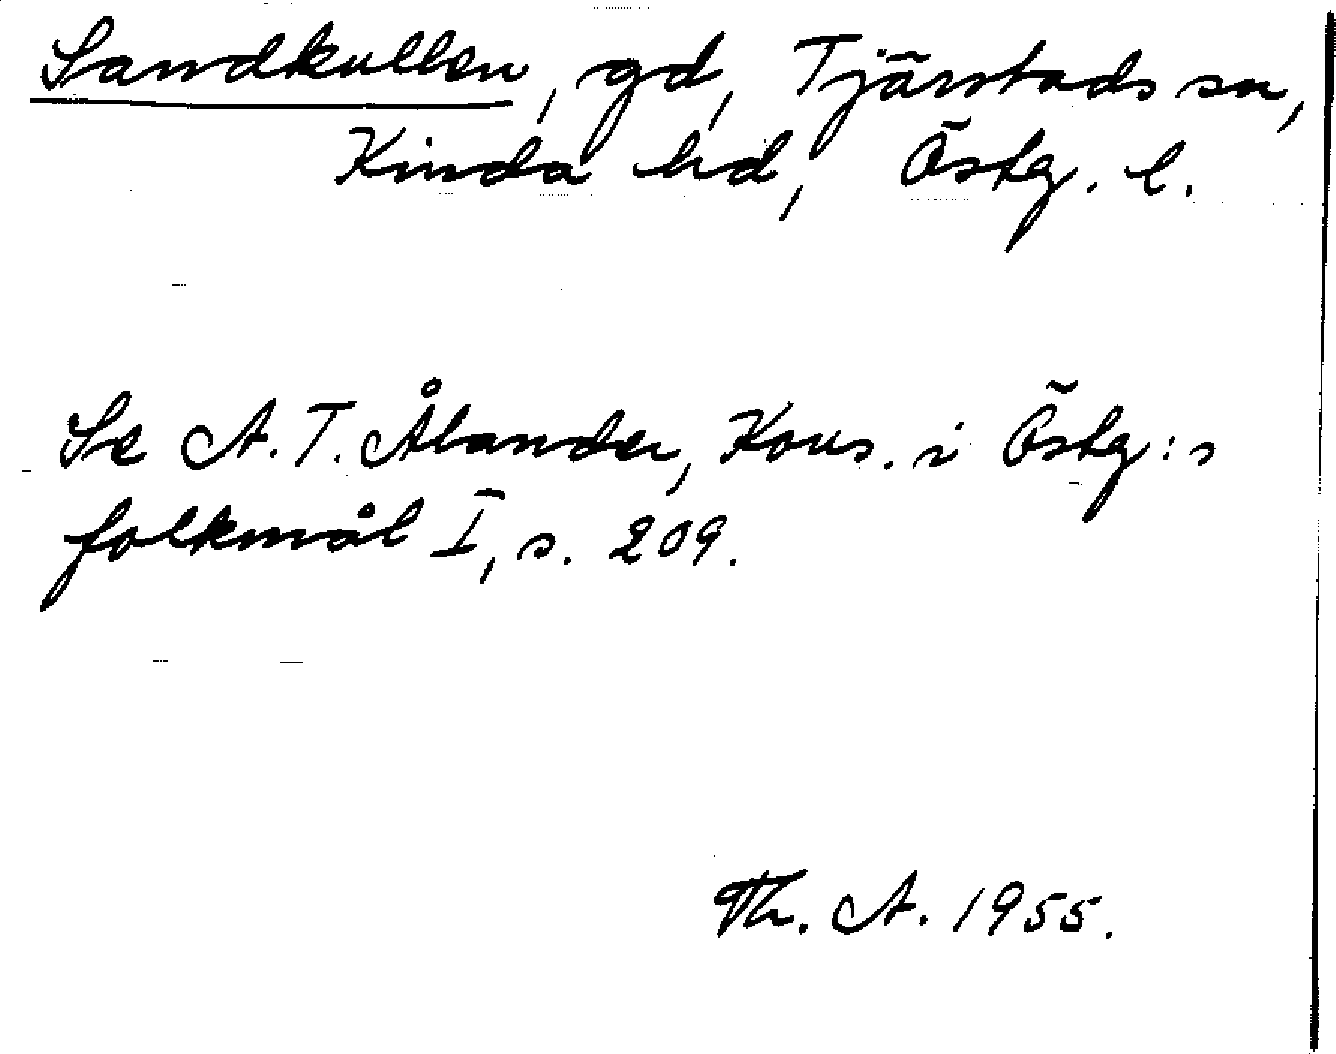 Sandkullen, gd, Tjärstads sn,
Kinda hd, Östg. l.
Se A. T. Ålander, Kons. i Östg:s
folkmål I, s. 209.
Th. A. 1955.